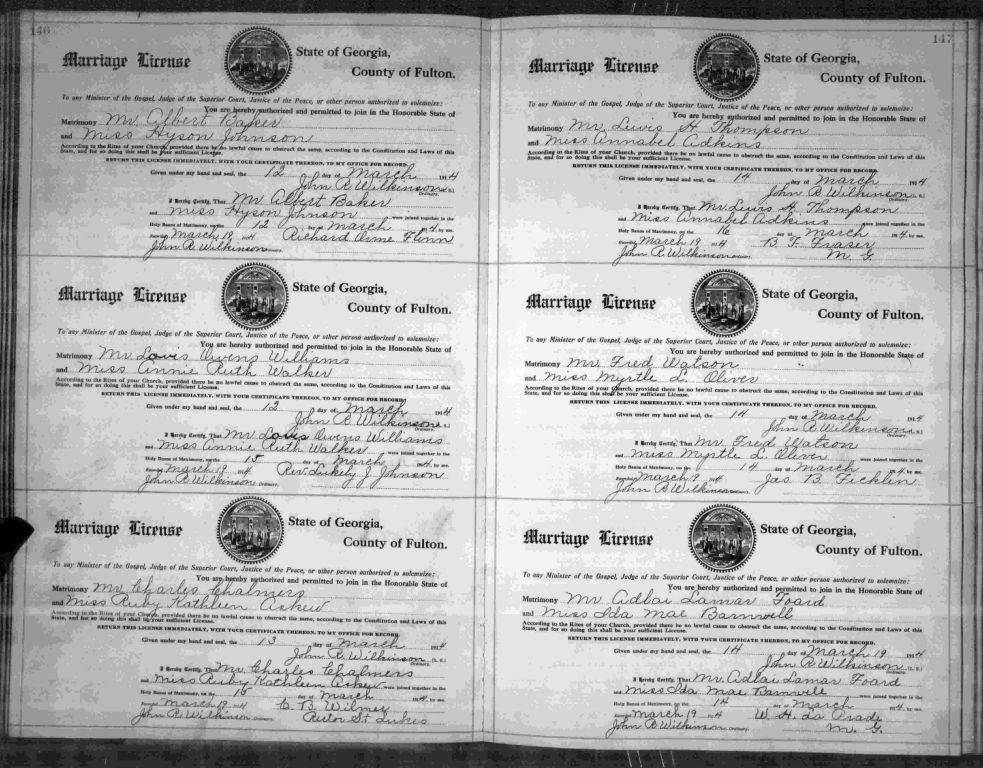 146
Marriage License
State of Georgia,
County of Fulton.
To any Minister of the Gospel, Judge of the Superior Court, Justice of the Peace, or other person authorized to solemnize:
You are hereby authorized and permitted to join in the Honorable State of
Matrimony Mr Albert Baker
and Miss Hyson Johnson
According to the Rites of your Church, provided there be no lawful cause to obstruct the same, according to the Constitution and Laws of this
State, and for so doing this shall be your sufficient License.
RETURN THIS LICENSE IMMEDIATELY, WITH YOUR CERTIFICATE THEREON, TO MY OFFICE FOR RECORD.
Given under my hand and seal, the 12 day of March 1914
John R. Wilkinson (L. S.)
Ordinary.
I Hereby Certify, That Mr Albert Baker
and Miss Hyson Johnson were joined together in the
Holy Banns of Matrimony, on the 12 day of March 1914, by me.
March 19 1914 Richard Orme Flinn
John R. Wilkinson Ordinary.
Marriage License
State of Georgia,
County of Fulton.
To any Minister of the Gospel, Judge of the Superior Court, Justice of the Peace, or other person authorized to solemnize:
You are hereby authorized and permitted to join in the Honorable State of
Matrimony Mr Lovis Owens Williams
and Miss Annie Ruth Walker
According to the Rites of your Church, provided there be no lawful cause to obstruct the same, according to the Constitution and Laws of this
State, and for so doing this shall be your sufficient License.
RETURN THIS LICENSE IMMEDIATELY, WITH YOUR CERTIFICATE THEREON, TO MY OFFICE FOR RECORD.
Given under my hand and seal, the 12 day of March 1914
John R. Wilkinson (L. S.)
Ordinary.
I Hereby Certify, That Mr Lovis Owens Williams
and Miss Annie Ruth Walker were joined together in the
Holy Banns of Matrimony, on the 15 day of March 1914, by me.
March 19 1914 Rev. J. Johnson
John R. Wilkinson Ordinary.
Marriage License
State of Georgia,
County of Fulton.
To any Minister of the Gospel, Judge of the Superior Court, Justice of the Peace, or other person authorized to solemnize:
You are hereby authorized and permitted to join in the Honorable State of
Matrimony Mr Charles Chalmers
and Miss Ruby Kathleen Askew
According to the Rites of your Church, provided there be no lawful cause to obstruct the same, according to the Constitution and Laws of this
State, and for so doing this shall be your sufficient License.
RETURN THIS LICENSE IMMEDIATELY, WITH YOUR CERTIFICATE THEREON, TO MY OFFICE FOR RECORD.
Given under my hand and seal, the 13 day of March 1914
John R. Wilkinson (L. S.)
Ordinary.
I Hereby Certify, That Mr Charles Chalmers
and Miss Ruby Kathleen Askew were joined together in the
Holy Banns of Matrimony, on the 15 day of March 1914, by me.
March 19 1914 C. B. Wilmer
John R. Wilkinson Ordinary. Rector St Lukes
147
Marriage License
State of Georgia,
County of Fulton.
To any Minister of the Gospel, Judge of the Superior Court, Justice of the Peace, or other person authorized to solemnize:
You are hereby authorized and permitted to join in the Honorable State of
Matrimony Mr Lewis H. Thompson
and Miss Annabel Adkins
According to the Rites of your Church, provided there be no lawful cause to obstruct the same, according to the Constitution and Laws of this
State, and for so doing this shall be your sufficient License.
RETURN THIS LICENSE IMMEDIATELY, WITH YOUR CERTIFICATE THEREON, TO MY OFFICE FOR RECORD.
Given under my hand and seal, the 14 day of March 1914
John R. Wilkinson (L. S.)
Ordinary.
I Hereby Certify, That Mr Lewis H. Thompson
and Miss Annabel Adkins were joined together in the
Holy Banns of Matrimony, on the 16 day of March 1914, by me.
March 19 1914 B. F. Fraser
John R. Wilkinson M. G.
Marriage License
State of Georgia,
County of Fulton.
To any Minister of the Gospel, Judge of the Superior Court, Justice of the Peace, or other person authorized to solemnize:
You are hereby authorized and permitted to join in the Honorable State of
Matrimony Mr. Fred Watson
and Miss Myrtle L. Oliver
According to the Rites of your Church, provided there be no lawful cause to obstruct the same, according to the Constitution and Laws of this
State, and for so doing this shall be your sufficient License.
RETURN THIS LICENSE IMMEDIATELY, WITH YOUR CERTIFICATE THEREON, TO MY OFFICE FOR RECORD.
Given under my hand and seal, the 14 day of March 1914
John R. Wilkinson (L. S.)
Ordinary.
I Hereby Certify, That Mr Fred Watson
and Miss Myrtle L. Oliver were joined together in the
Holy Banns of Matrimony, on the 14 day of March 1914, by me.
March 19 1914 Jas B. Ficklin
John R. Wilkinson
Marriage License
State of Georgia,
County of Fulton.
To any Minister of the Gospel, Judge of the Superior Court, Justice of the Peace, or other person authorized to solemnize:
You are hereby authorized and permitted to join in the Honorable State of
Matrimony Mr Adlai Lamar Foard
and Miss Ida Mae Barnwell
According to the Rites of your Church, provided there be no lawful cause to obstruct the same, according to the Constitution and Laws of this
State, and for so doing this shall be your sufficient License.
RETURN THIS LICENSE IMMEDIATELY, WITH YOUR CERTIFICATE THEREON, TO MY OFFICE FOR RECORD.
Given under my hand and seal, the 14 day of March 19 1914
John R. Wilkinson (L. S.)
Ordinary.
I Hereby Certify, That Mr. Adlai Lamar Foard
and Miss Ida Mae Barnwell were joined together in the
Holy Banns of Matrimony, on the 14 day of March 1914, by me.
March 19 1914 W. H. La Prade
John R. Wilkinson Ordinary. M. G.